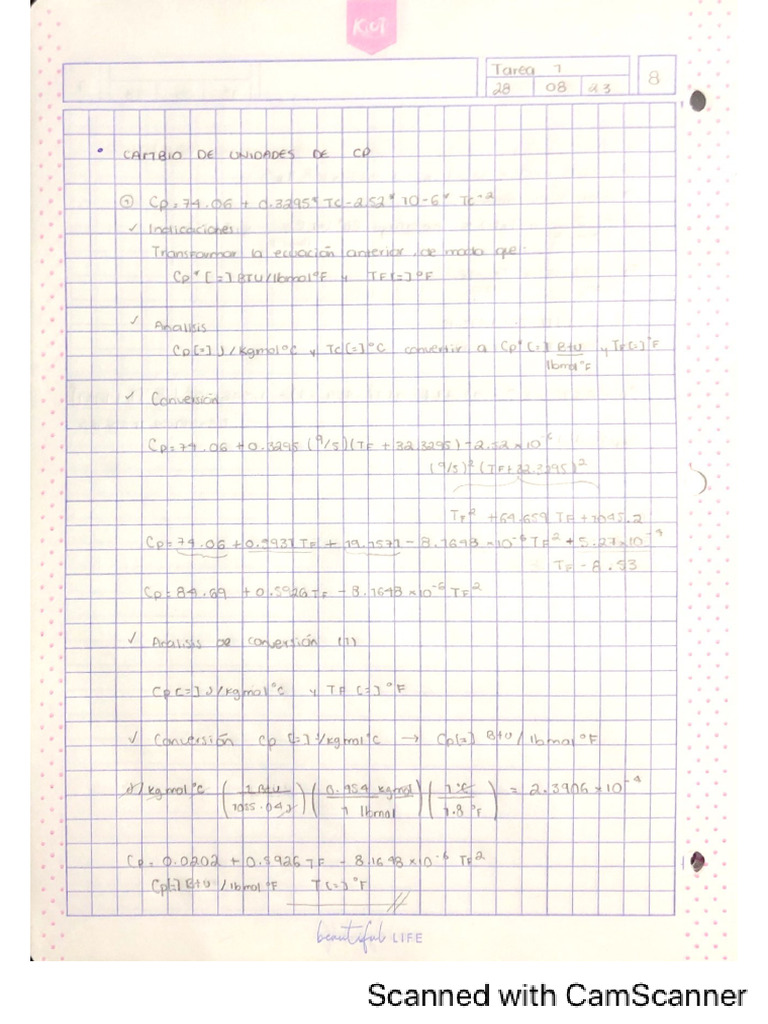 Kiut
Tarea 1
28 08 23
8
• CAMBIO DE UNIDADES DE CP
① Cp=74.06 + 0.3295* TC-2.52* 10-6* TC^2
✓ Indicaciones
Transformar la ecuación anterior, de modo que:
Cp* [=] BTU/lbmol°F y TF[=]°F
✓ Analisis
Cp[=] J/kgmol°C y Tc[=]°C convertir a Cp*[=] Btu/lbmol°F y TF[=]°F
✓ Conversión
Cp=74.06 +0.3295 (9/5)(TF + 32.3295)-2.52×10^-6
(9/5)^2 (TF+32.3295)^2
TF^2 +64.659 TF +1045.2
Cp=74.06 + 0.5931TF + 19.1571 - 8.1648×10^-6 TF^2 +5.27×10^-4
TF - 8.53
Cp= 84.69 + 0.5926TF - 8.1648 ×10^-6 TF^2
✓ Analisis de conversión (1)
Cp[=] J/kgmol°C y TF [=]°F
✓ Conversión Cp [=] J/kgmol°C → Cp[=] Btu/lbmol°F
J/kgmol°C (1 Btu/1055.04J) (0.454 kgmol/1 lbmol) (1°C/1.8°F) = 2.3906 ×10^-4
Cp= 0.0202 + 0.5926 TF - 8.1648 ×10^-6 TF^2
Cp[=] Btu/lbmol°F T[=]°F
beautiful LIFE
Scanned with CamScanner